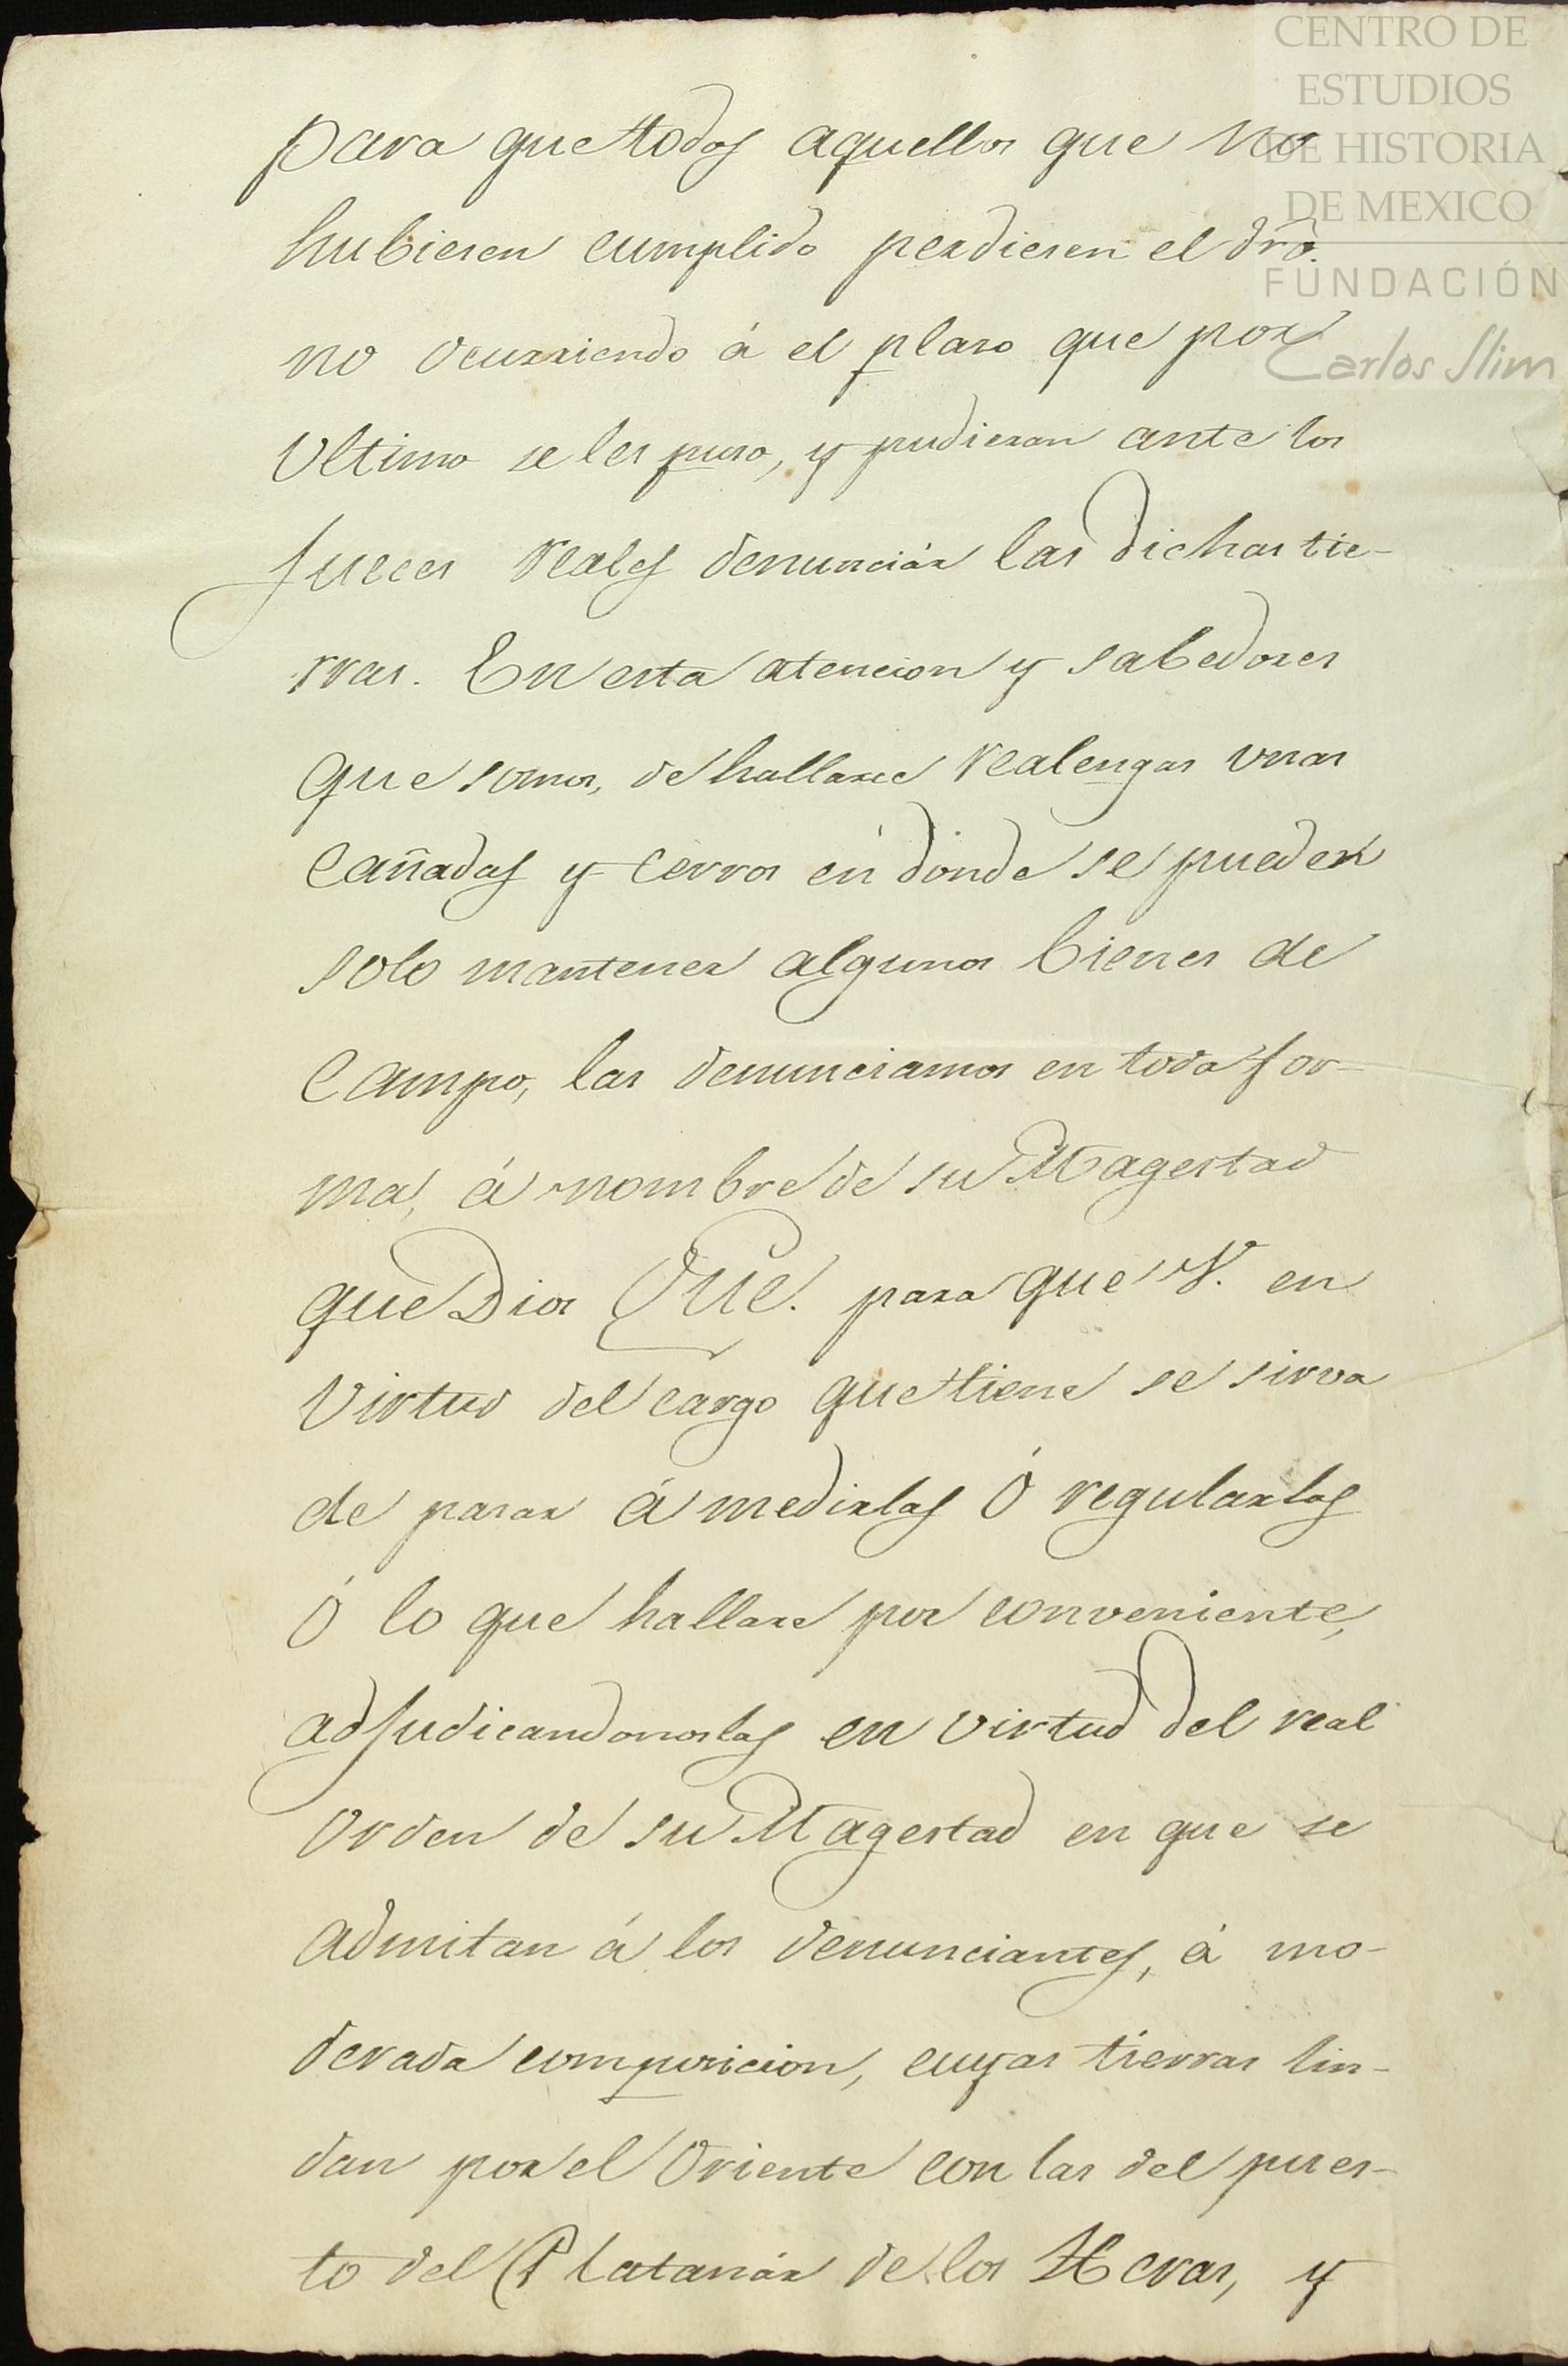 CENTRO DE
ESTUDIOS
DE HISTORIA
DE MEXICO
FUNDACIÓN
Carlos Slim
para que todos aquellos que no
hubiesen cumplido perdiesen el dró.
no ocurriendo á el plaso que por
Ultimo se les puso, y pudieran ante los
Jueces reales denunciár las dichas tie-
rras. En esta atencion y sabedores
que somos, de hallarse realengas unas
Cañadas y Cerros en donde se pueden
solo mantener algunos bienes de
Campo, las denunciamos en toda for-
ma, á nombre de su Magestad
que Dios Gue. para que V. en
Virtud del cargo que tiene se sirva
de pasar á medirlas ó regularlas
ó lo que hallare por conveniente,
adjudicandonoslas en virtud del real
Orden de su Magestad en que se
admitan á los denunciantes, á mo-
derada composicion, cuyas tierras lin-
dan por el Oriente con las del pues-
to del Platanár de los Heras, y